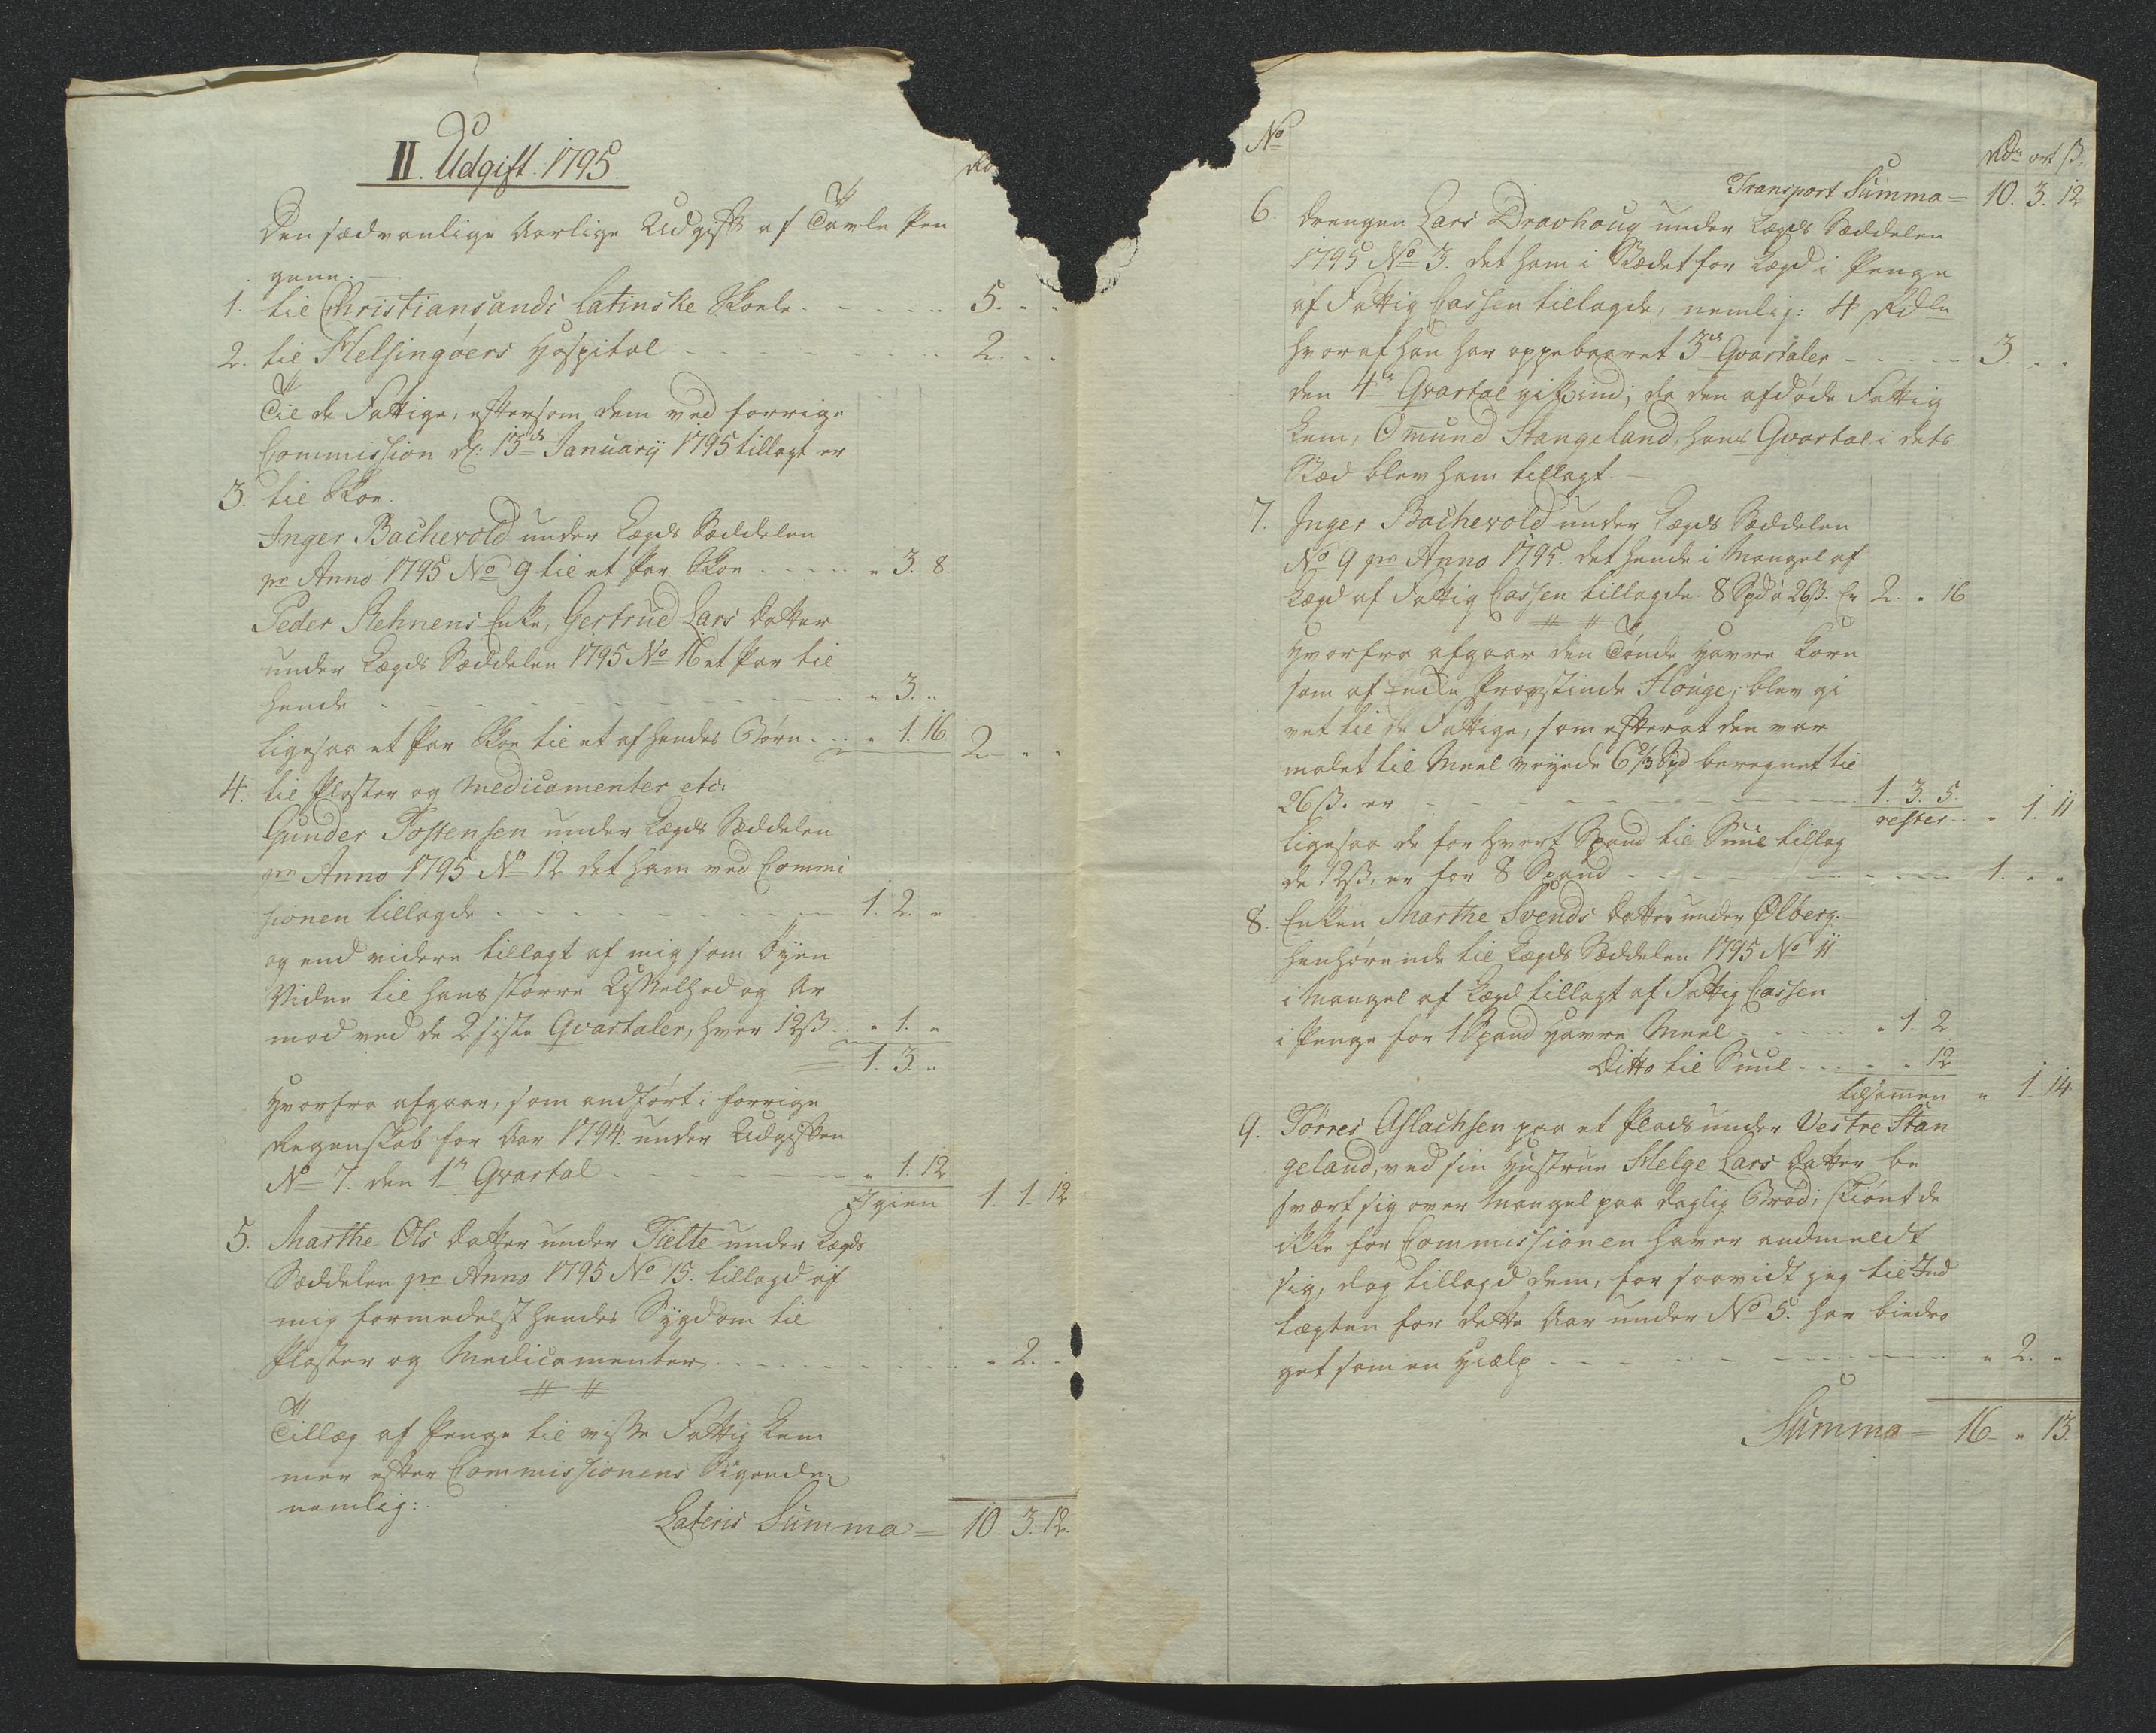 II. Udgift. 1795.
Rd
Den sædvanlige Aarlige Udgift af Tavle Pen
gene.
1. til Christiansands Latinske Skoele - - - - - 5. " "
2. til Helsingøers Hospital - - - - - - - - 2. " "
Til de Fattige, eftersom dem ved forrige
Commission d: 13de Januarij 1795 tillagt er
3. til Skoe.
Inger Bachevold under Lægds Seddelen
pr Anno 1795 No 9 til et Par Skoe - - - - - " 3. 8.
Peder Rehnens Enke, Gertrud Lars Datter
under Lægds Seddelen 1795 No 16 et Par til
hende - - - - - - - - - - - - " 3. "
ligesaa et Par Skoe til et af hendes Børn - - " 1. 16 2 - " "
4. til Plaster og Medicamenter etc:
Gunder Tostensen under Lægds Seddelen
pro Anno 1795. No 12 det ham ved Commi
sionen tillagde - - - - - - - - - - 1. 2. "
og end videre tillagt af mig som Øyen
Vidne til hans større Usselhed og Ar
mod ved de 2 siste Qvartaler, hver 12ß - - " 1. "
= 1. 3. "
Hvorfra afgaar, som andført i forrige
Regenskab for Aar 1794. under Udgiften
No 7. den 1te Qvartal - - - - - - - - " 1. 12
Igien 1. 1. 12
5. Marthe Ols Datter under Tielte under Lægds
Seddelen pro Anno 1795 No 15. tillagd af
mig formedelst hendes Sygdom til
Plaster og Medicamenter - - - - - - - - - " 2. "
# #
Tillæg af Penge til visse Fattig Lem
mer efter Commissionens Sigende:
nemlig:
Lateris Summa = 10. 3. 12.
No
Rdr ort ß.
Transport Summa = 10. 3. 12
6. Drengen Lars Dravhoug under Lægds Seddelen
1795 No 3. det ham i Stædet for Lægd i Penge
af Fattig Cassen tillagde, nemlig: 4 Rdlr
hvoraf han har oppebaaret 3de Qvartaler - - - - - 3. " "
den 4de Qvartal gik ind; da den afdøde Fattig
Lem, Omund Stangeland, hans Qvartal i dets
Stæd blev ham tillagt. -
7. Inger Bachevold under Lægds Seddelen
No 9 pro Anno 1795. det hende i Mangel af
Lægd af Fattig Cassen tillagde 8 Spd a 26ß. Er 2. " 16
# #
Hvorfra afgaar den Tønde Havre Korn
som af Provstinde Houge, blev gi
vet til de Fattige, som efterat den var
malet til Meel veyede Spd beregnet til
26ß. er - - - - - - - - - - 1. 3. 5.
rester - " 1. 11
ligesaa de for hvert Spand til Suul tillag
de 12ß, er for 8 Spand - - - - - - - - - 1. " "
8. Enken Marthe Svends Datter under Ølberg -
henhørende til Lægds Seddelen 1795 No 11
i Mangel af Lægd tillagt af Fattig Cassen
i Penge for 1 Spand Havre Meel - - - - - " 1. 2
Ditto til Suul - - - " " 12
tilsamen " 1. 14
9. Tørres Aslachsen paa et Plads under Vestre Stan
geland, ved sin Hustrue Helge Lars Datter be
svært sig over Mangel paa daglig Brød; skiønt de
ikke for Commissionen haver andmeldt
sig, dog tillagd dem, for saavidt jeg til Ind
tægten for dette Aar under No 5. har biedra
get som en Hielp - - - - - - - - - - " 2. "
Summa = 16 - " 13.